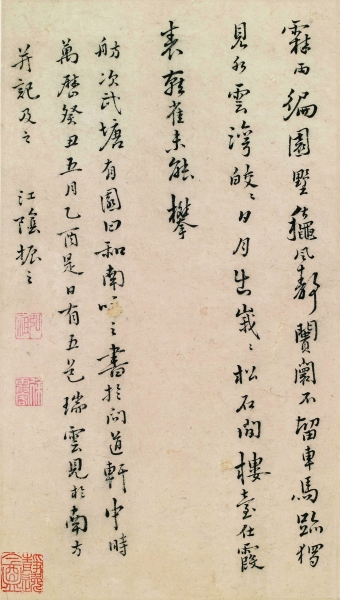 霖雨園墅風闠不留車馬跡獨
見水雲灣皎〻日月出峩〻松石間樓臺仕霞
表雀未能攀
舫次武塘有園曰和南之書於问道軒中時
萬曆癸丑五月乙酉是日有五色瑞雲見於南方
并記及之 江陰振之